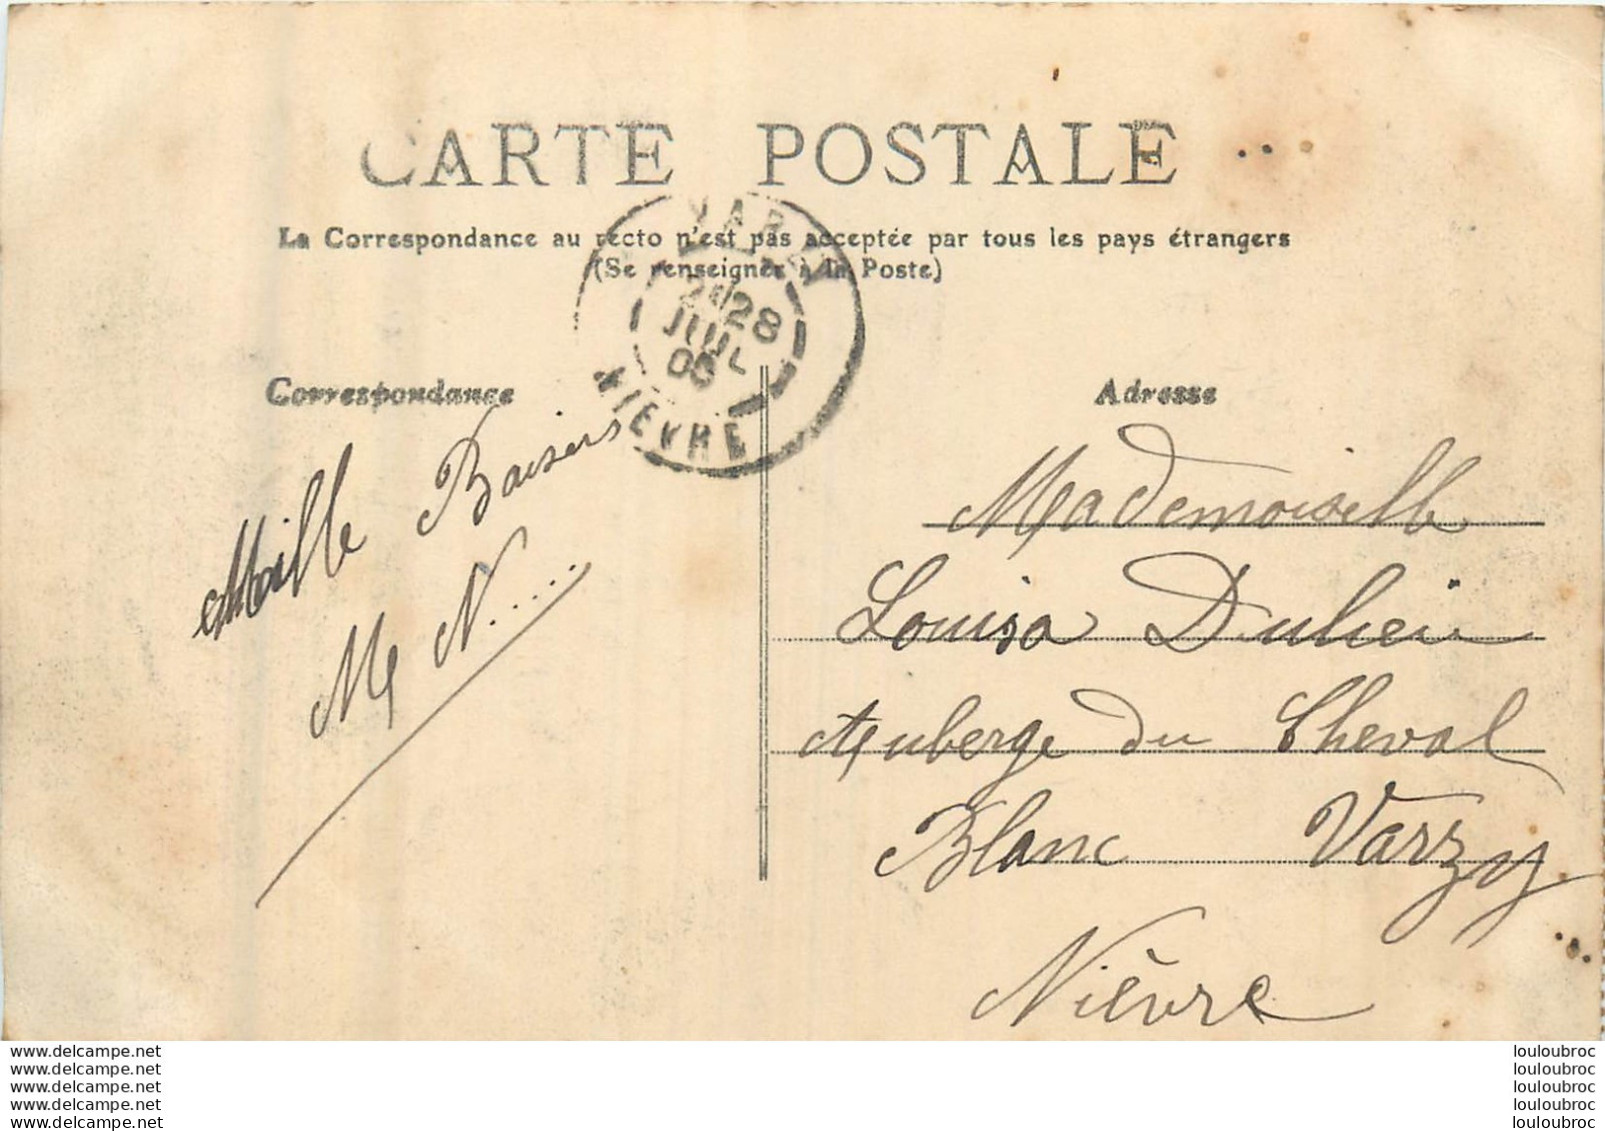 CARTE POSTALE
La Correspondance au recto n'est pas acceptée par tous les pays étrangers
(Se renseigner à la Poste)
VARZY
28
JUIL
05
NIEVRE
Correspondance
Mille Baisers
M N....
Adresse
Mademoiselle
Louisa
Auberge du Cheval
Blanc Varzy
Nièvre
www.delcampe.net
www.delcampe.net
www.delcampe.net
www.delcampe.net
www.delcampe.net
louloubroc
louloubroc
louloubroc
louloubroc
louloubroc